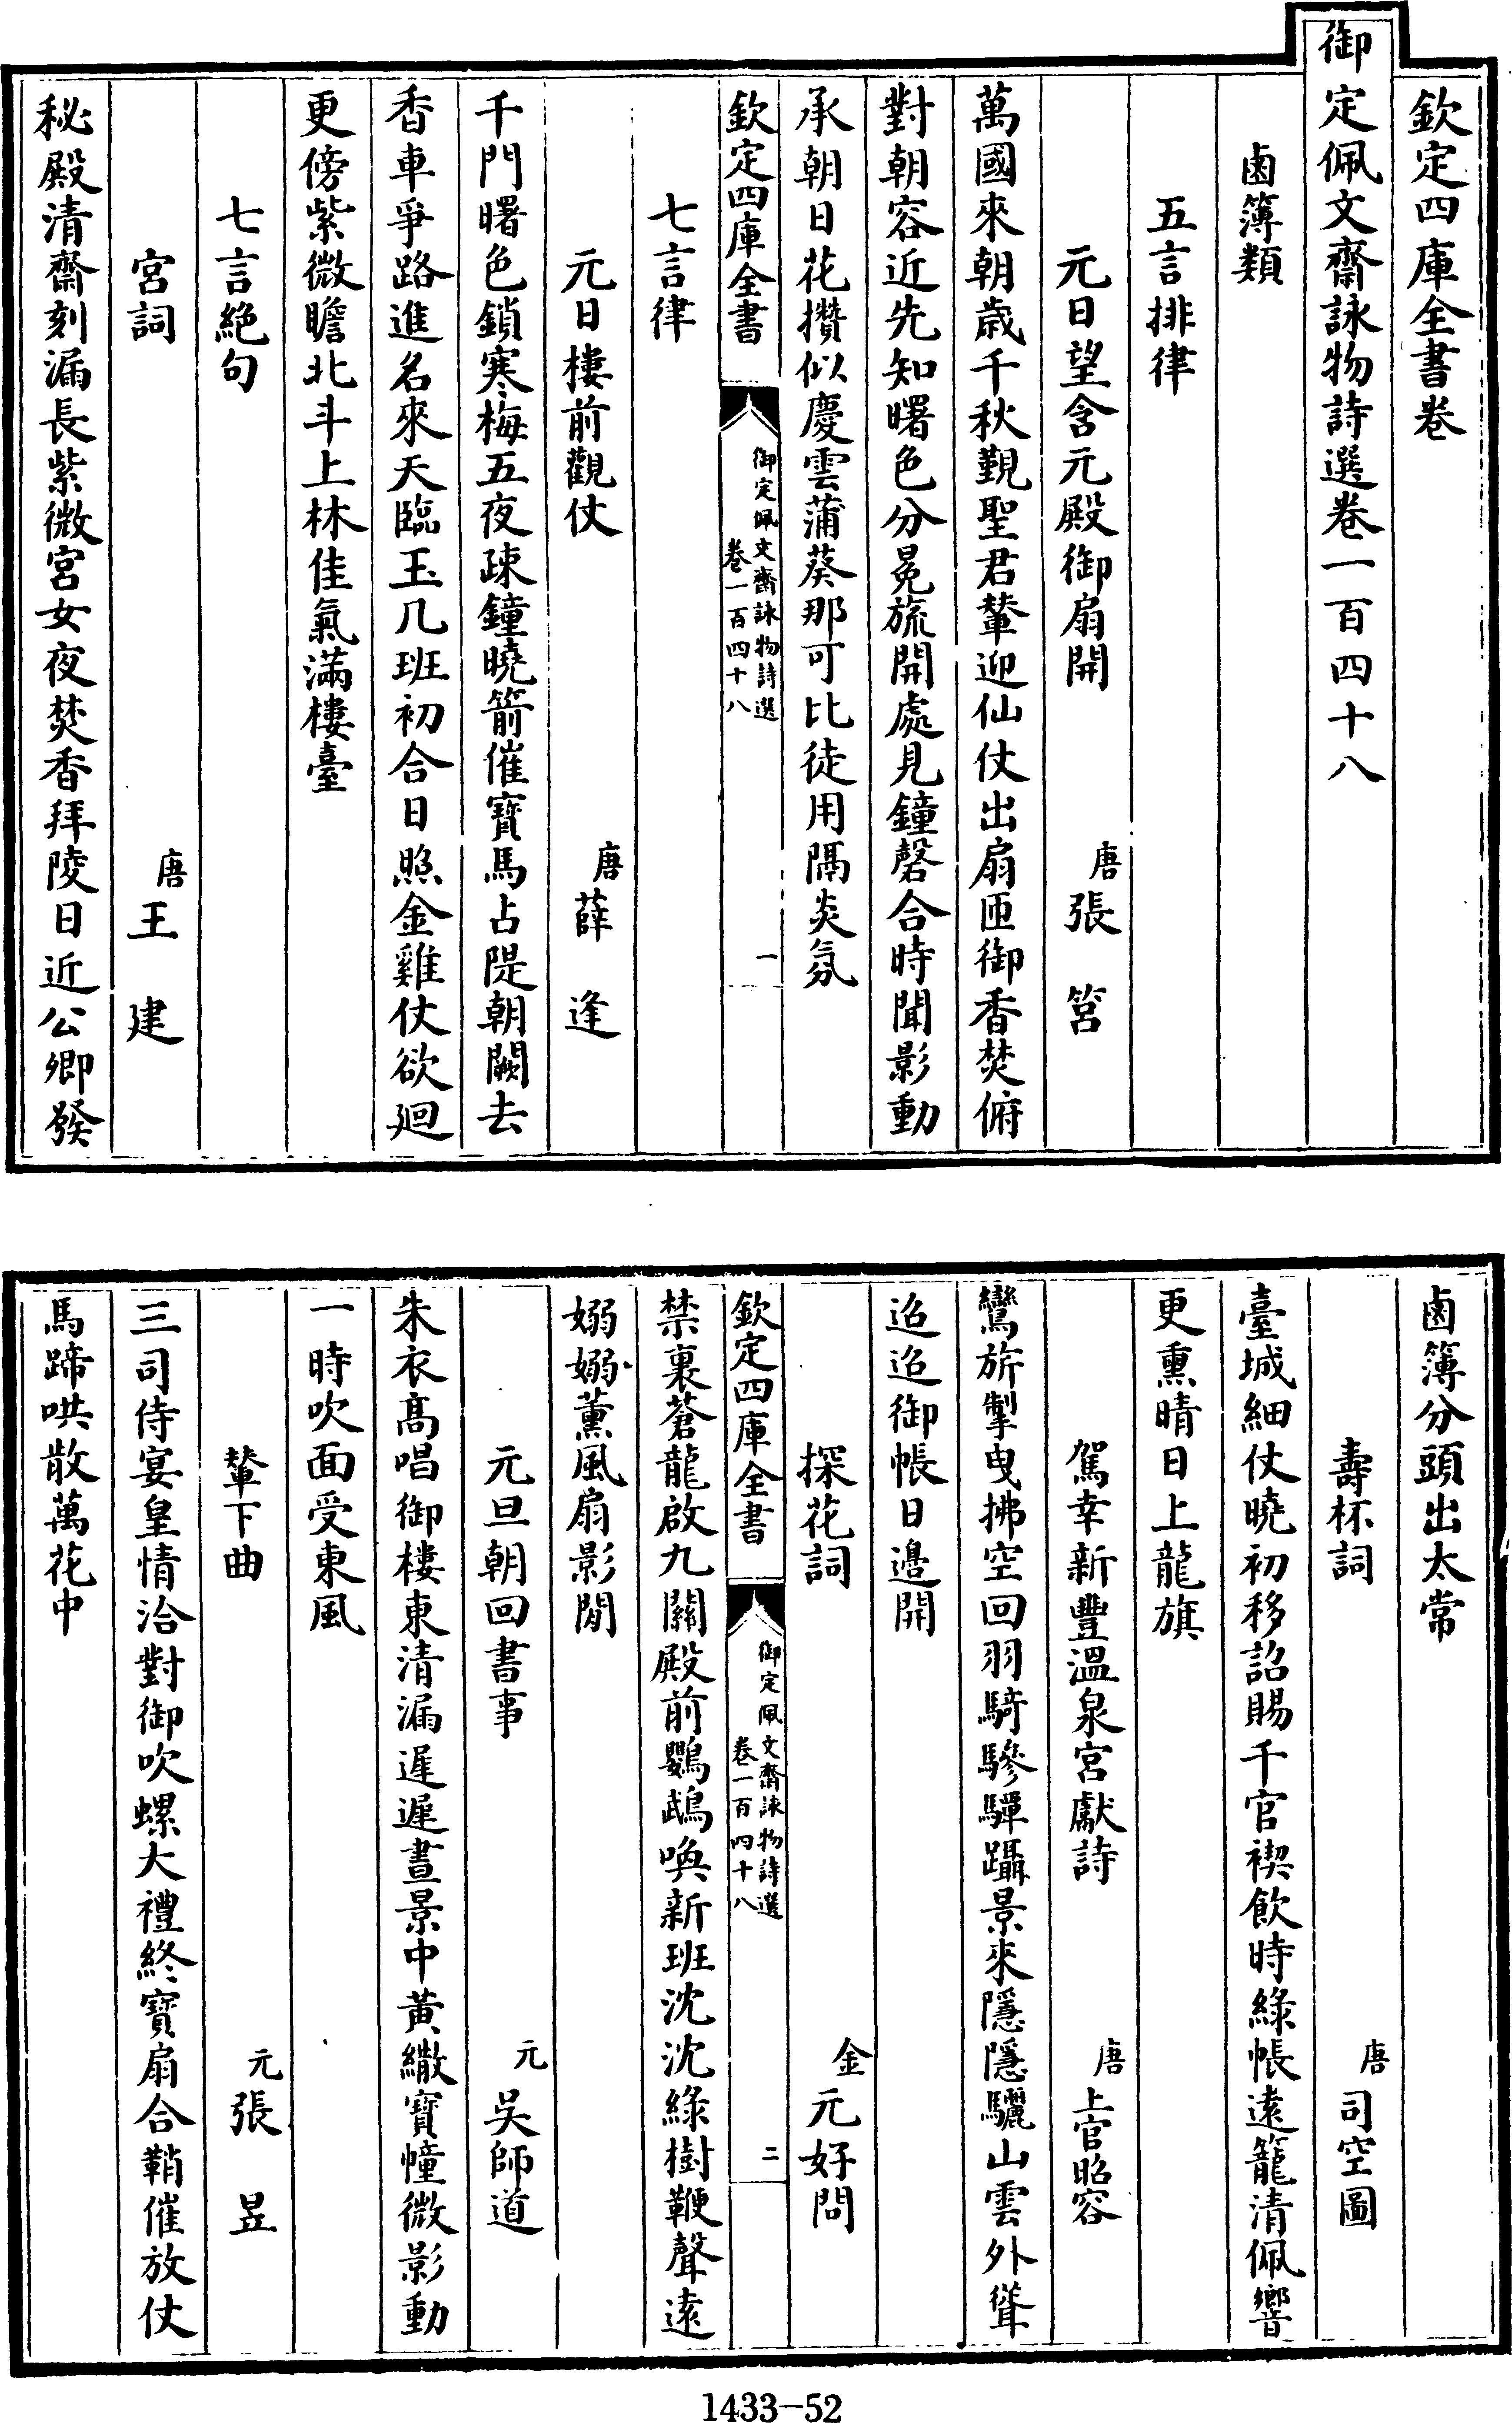 欽定四庫全書卷
御定佩文齋詠物詩選卷一百四十八
鹵簿類
五言排律
元日望含元殿御扇開 唐 張筥
萬國來朝歲千秋覲聖君輦迎仙仗出扇匝御香焚俯
對朝容近先知曙色分冕旒開處見鐘磬合時聞影動
承朝日花攢似慶雲蒲葵那可比徒用隔炎氛
欽定四庫全書 御定佩文齋詠物詩選 卷一百四十八 一
七言律
元日樓前觀仗 唐 薛逢
千門曙色鎖寒梅五夜疎鐘曉箭催寶馬占隄朝闕去
香車爭路進名來天臨玉几班初合日照金雞仗欲迴
更傍紫微瞻北斗上林佳氣滿樓臺
七言絶句
宮詞 唐 王建
秘殿清齋刻漏長紫微宮女夜焚香拜陵日近公卿發
鹵簿分頭出太常
壽杯詞 唐 司空圖
臺城細仗曉初移詔賜千官禊飲時綠帳遠籠清佩響
更熏晴日上龍旗
駕幸新豐溫泉宮獻詩 唐 上官昭容
鸞旂掣曳拂空回羽騎驂驔躡景來隱隱驪山雲外聳
迢迢御帳日邊開
探花詞 金 元好問
欽定四庫全書 御定佩文齋詠物詩選 卷一百四十八 二
禁裏蒼龍啟九關殿前鸚鵡喚新班沈沈綠樹鞭聲遠
嫋嫋薰風扇影閒
元旦朝回書事 元 吳師道
朱衣高唱御樓東清漏遲遲晝景中黃繖寶幢微影動
一時吹面受東風
輦下曲 元 張昱
三司侍宴皇情洽對御吹螺大禮終寶扇合鞘催放仗
馬蹄哄散萬花中
1433-52